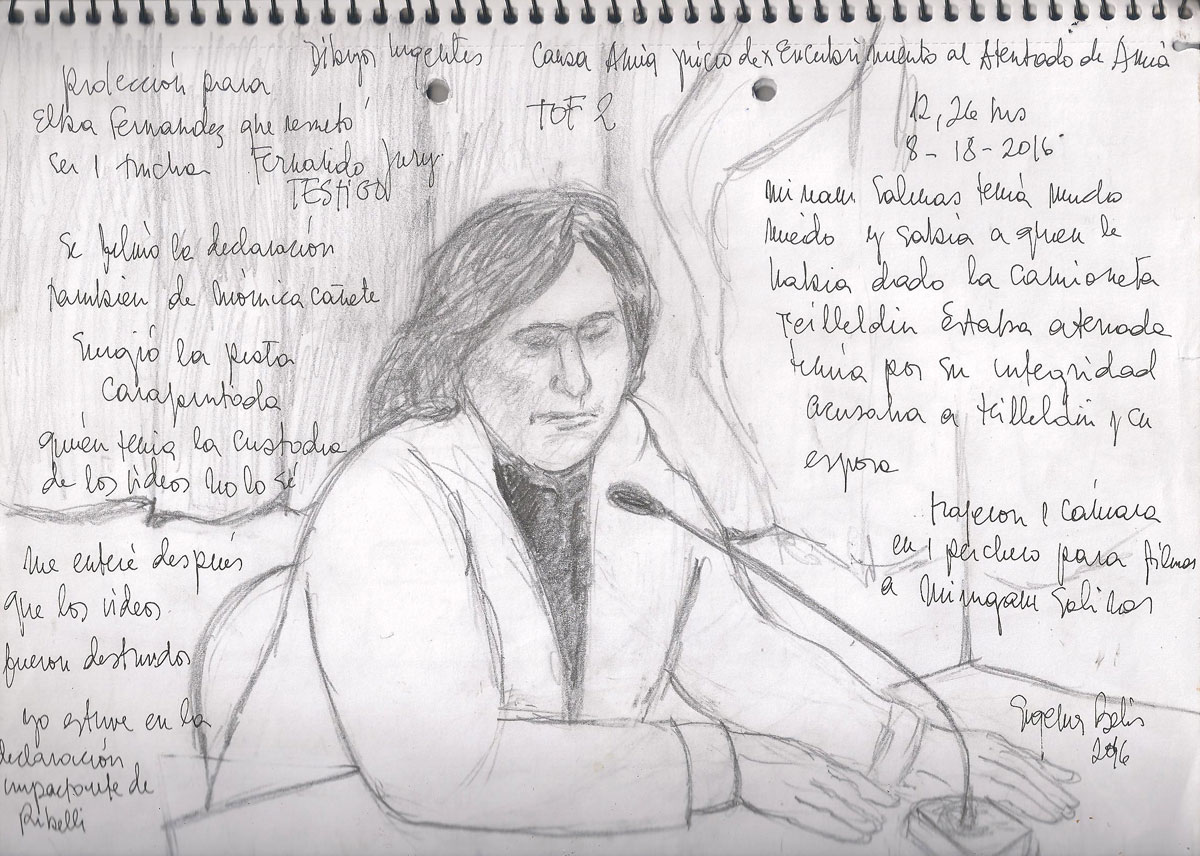 Dibujos Urgentes Causa Amia juicio de x Encubrimiento al Atentado de Amia
TOF 2
12,26 hs
8-18-2016
protección para
Elsa Fernandez que
ser 1 trucha Fernando
TESTIGO
Se filmó la declaración
también de Mónica Cañete
Surgió la pista
Carapintada
quién tenia la custodia
de los videos no lo sé
me enteré después
que los videos
fueron destruidos
yo estuve en la
declaración
impactante de
Ribelli
Miriam Salinas tenía mucho
miedo y sabia a quien le
habia dado la camioneta
Teilleldin Estaba aterrada
temia por su integridad
acusaba a Teilleldin y su
esposa
trajeron 1 cámara
en 1 perchero para filmar
a Miryam Salinas
Eugenia Bekis
2016